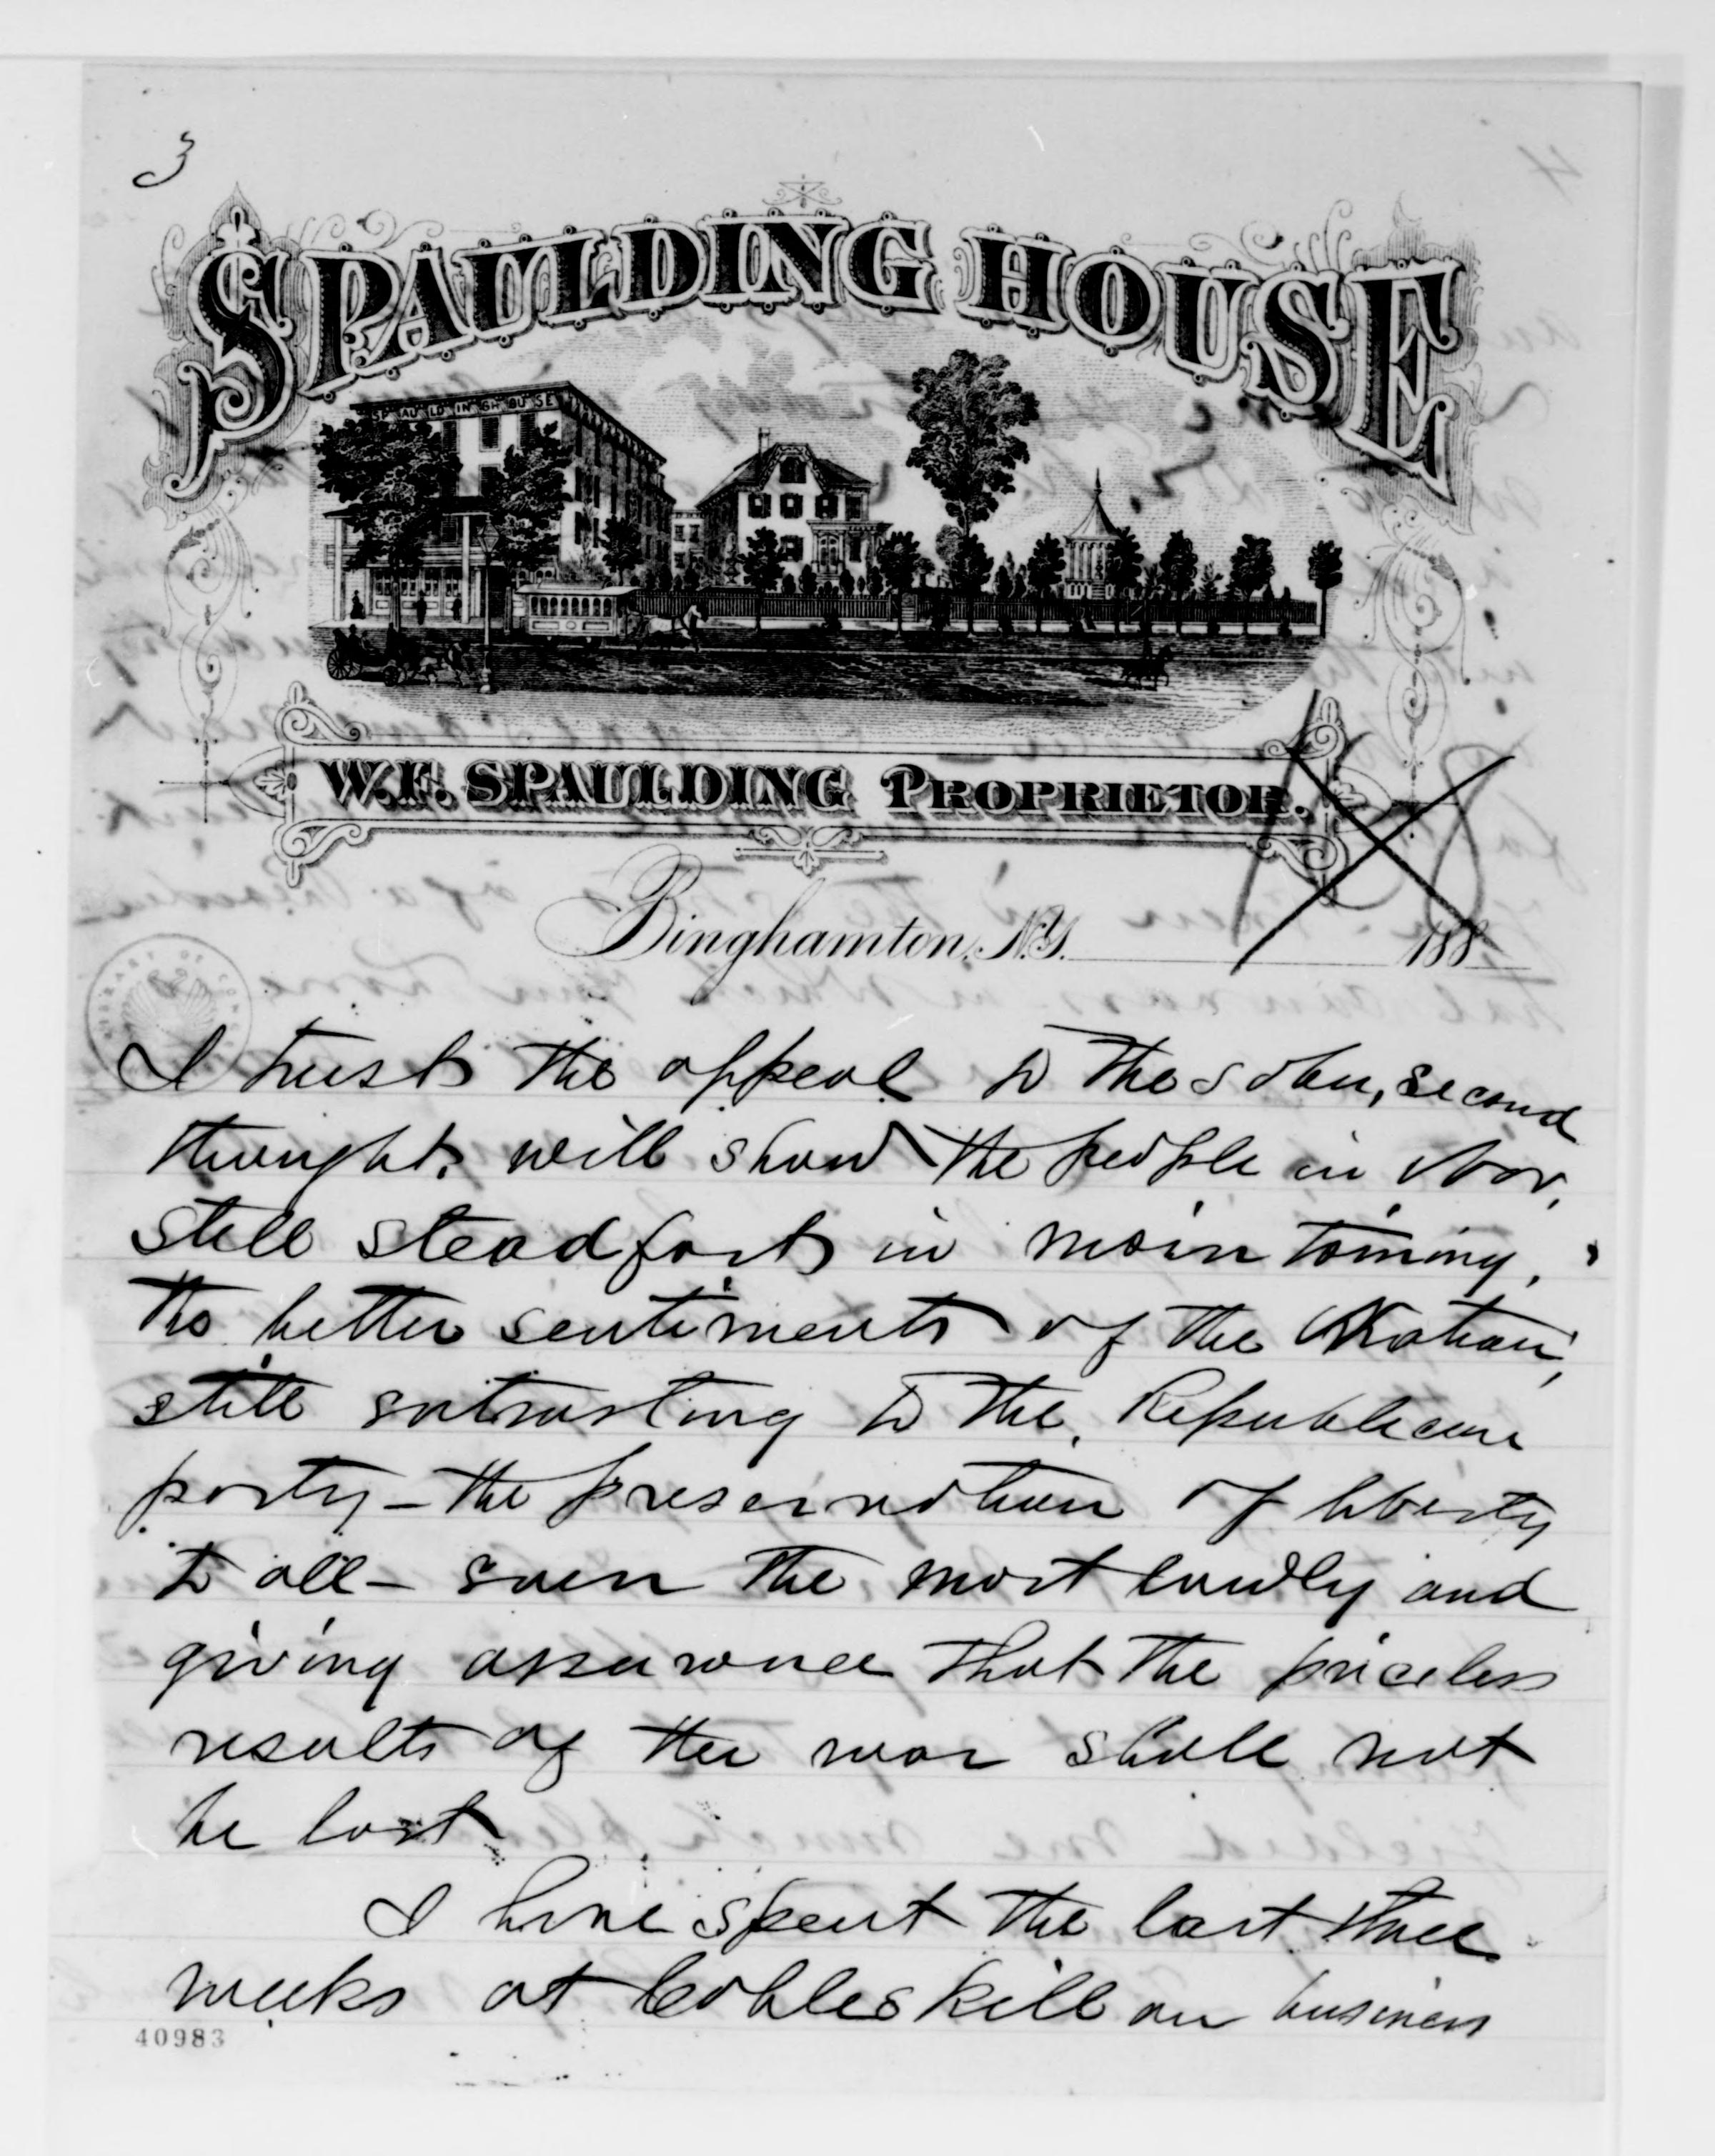 3
SPAULDING HOUSE
SPAULDING HOUSE
W.F. SPAULDING PROPRIETOR.
Binghamton, N.Y. 188
I trust the appeal to the sober, second
thought, will show the people in Nov,
still steadfast in maintaining,
the better sentiments of the Nation,
still intrusting to the Republican
party – the preservation of liberty
to all – even the most lowly and
giving assurance that the priceless
results of the war shall not
be lost
I have spent the last three
weeks at Cobleskill on business
40983